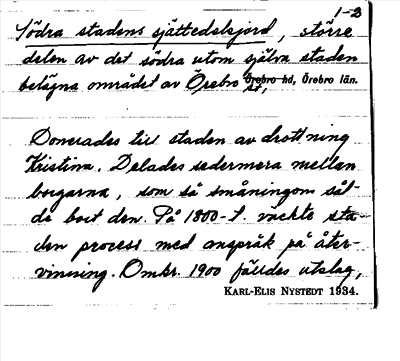 1-2
Södra stadens sjättedelsjord, större
delen av det södra utom själva staden
belägna området av Örebro Örebro hd, Örebro län.
st,
Donerades till staden av drottning
Kristina. Delades sedermera mellan
borgarna, som så småningom sål-
de bort den. På 1800-t. väckte sta-
den process med anspråk på åter-
vinning. Omkr. 1900 fälldes utslag,
KARL-ELIS NYSTEDT 1934.